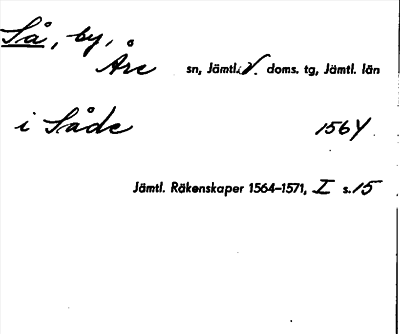 Så, by,
Åre sn, Jämtl. V. doms. tg, Jämtl. län
i Såde 1564
Jämtl. Räkenskaper 1564–1571, I s. 15